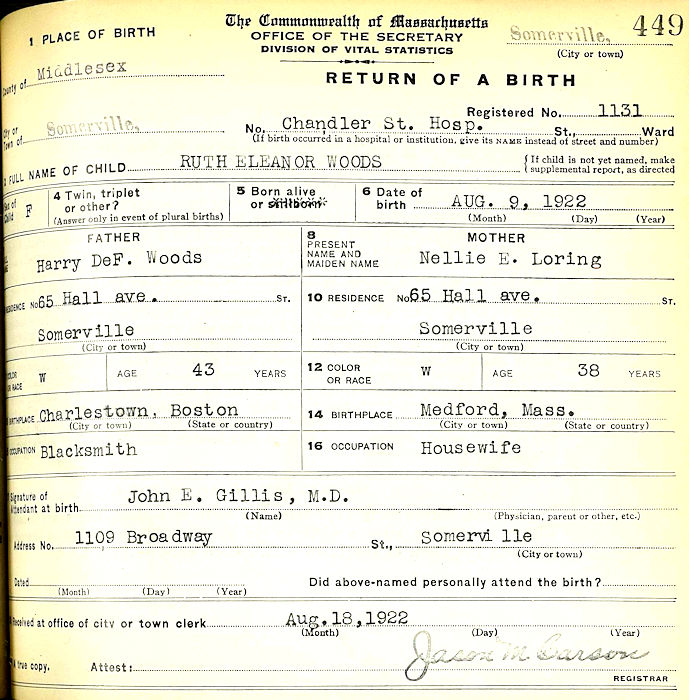 The Commonwealth of Massachusetts
OFFICE OF THE SECRETARY
DIVISION OF VITAL STATISTICS
RETURN OF A BIRTH
Somerville, 449
(City or town)
1 PLACE OF BIRTH
County of Middlesex
City or Town of Somerville,
Registered No. 1131
No. Chandler St. Hosp. St., Ward
(If birth occurred in a hospital or institution, give its NAME instead of street and number)
FULL NAME OF CHILD RUTH ELEANOR WOODS
{If child is not yet named, make
supplemental report, as directed
Sex of Child F
4 Twin, triplet
or other?
(Answer only in event of plural births)
5 Born alive
or stillborn
6 Date of
birth AUG. 9, 1922
(Month) (Day) (Year)
FATHER
Harry DeF. Woods
8 PRESENT NAME AND MAIDEN NAME
MOTHER
Nellie E. Loring
RESIDENCE No 65 Hall ave. ST.
10 RESIDENCE No 65 Hall ave. ST.
Somerville
(City or town)
Somerville
(City or town)
COLOR OR RACE W AGE 43 YEARS
12 COLOR OR RACE W AGE 38 YEARS
BIRTHPLACE Charlestown, Boston
(City or town) (State or country)
14 BIRTHPLACE Medford, Mass.
(City or town) (State or country)
OCCUPATION Blacksmith
16 OCCUPATION Housewife
Signature of
Attendant at birth John E. Gillis, M.D.
(Name) (Physician, parent or other, etc.)
Address No. 1109 Broadway St., Somervi lle
(City or town)
Dated
(Month) (Day) (Year)
Did above-named personally attend the birth?
Received at office of city or town clerk Aug.18,1922
(Month) (Day) (Year)
A true copy. Attest: Jason M Carson
REGISTRAR